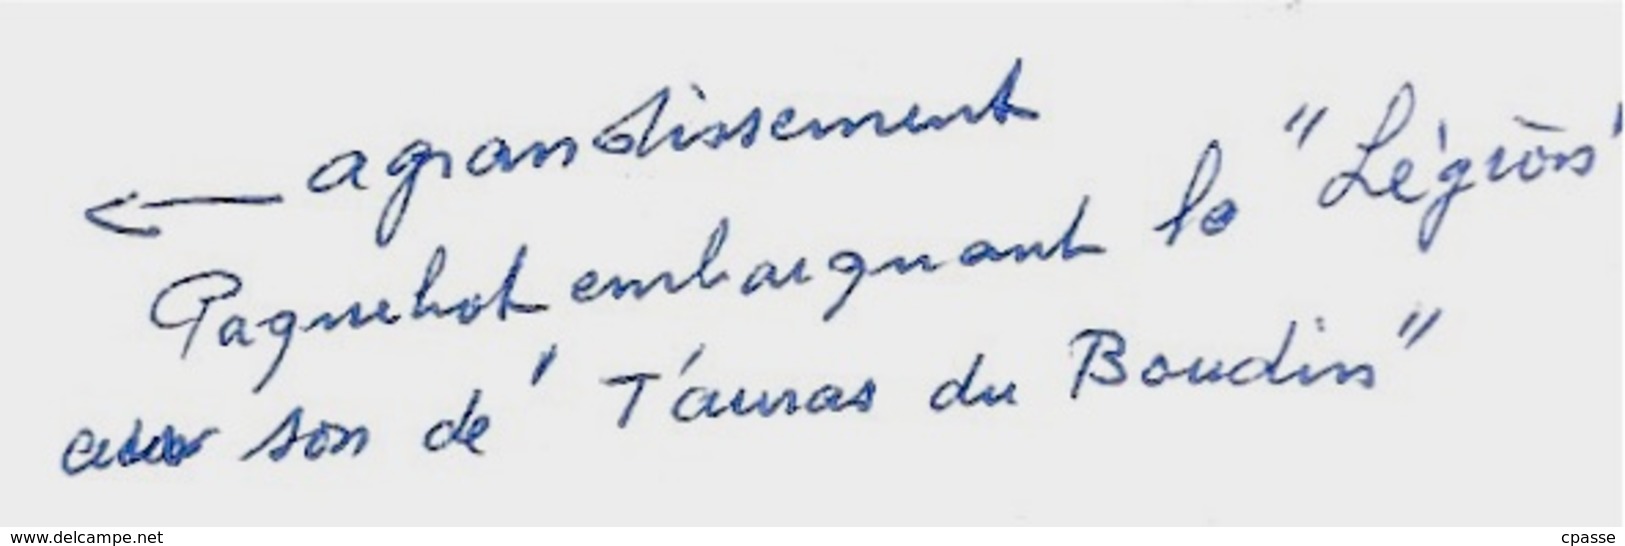 ← agrandissement
Paquebot embarquant la "Légion"
aux son de "T'auras du Boudin"
www.delcampe.net
cpasse